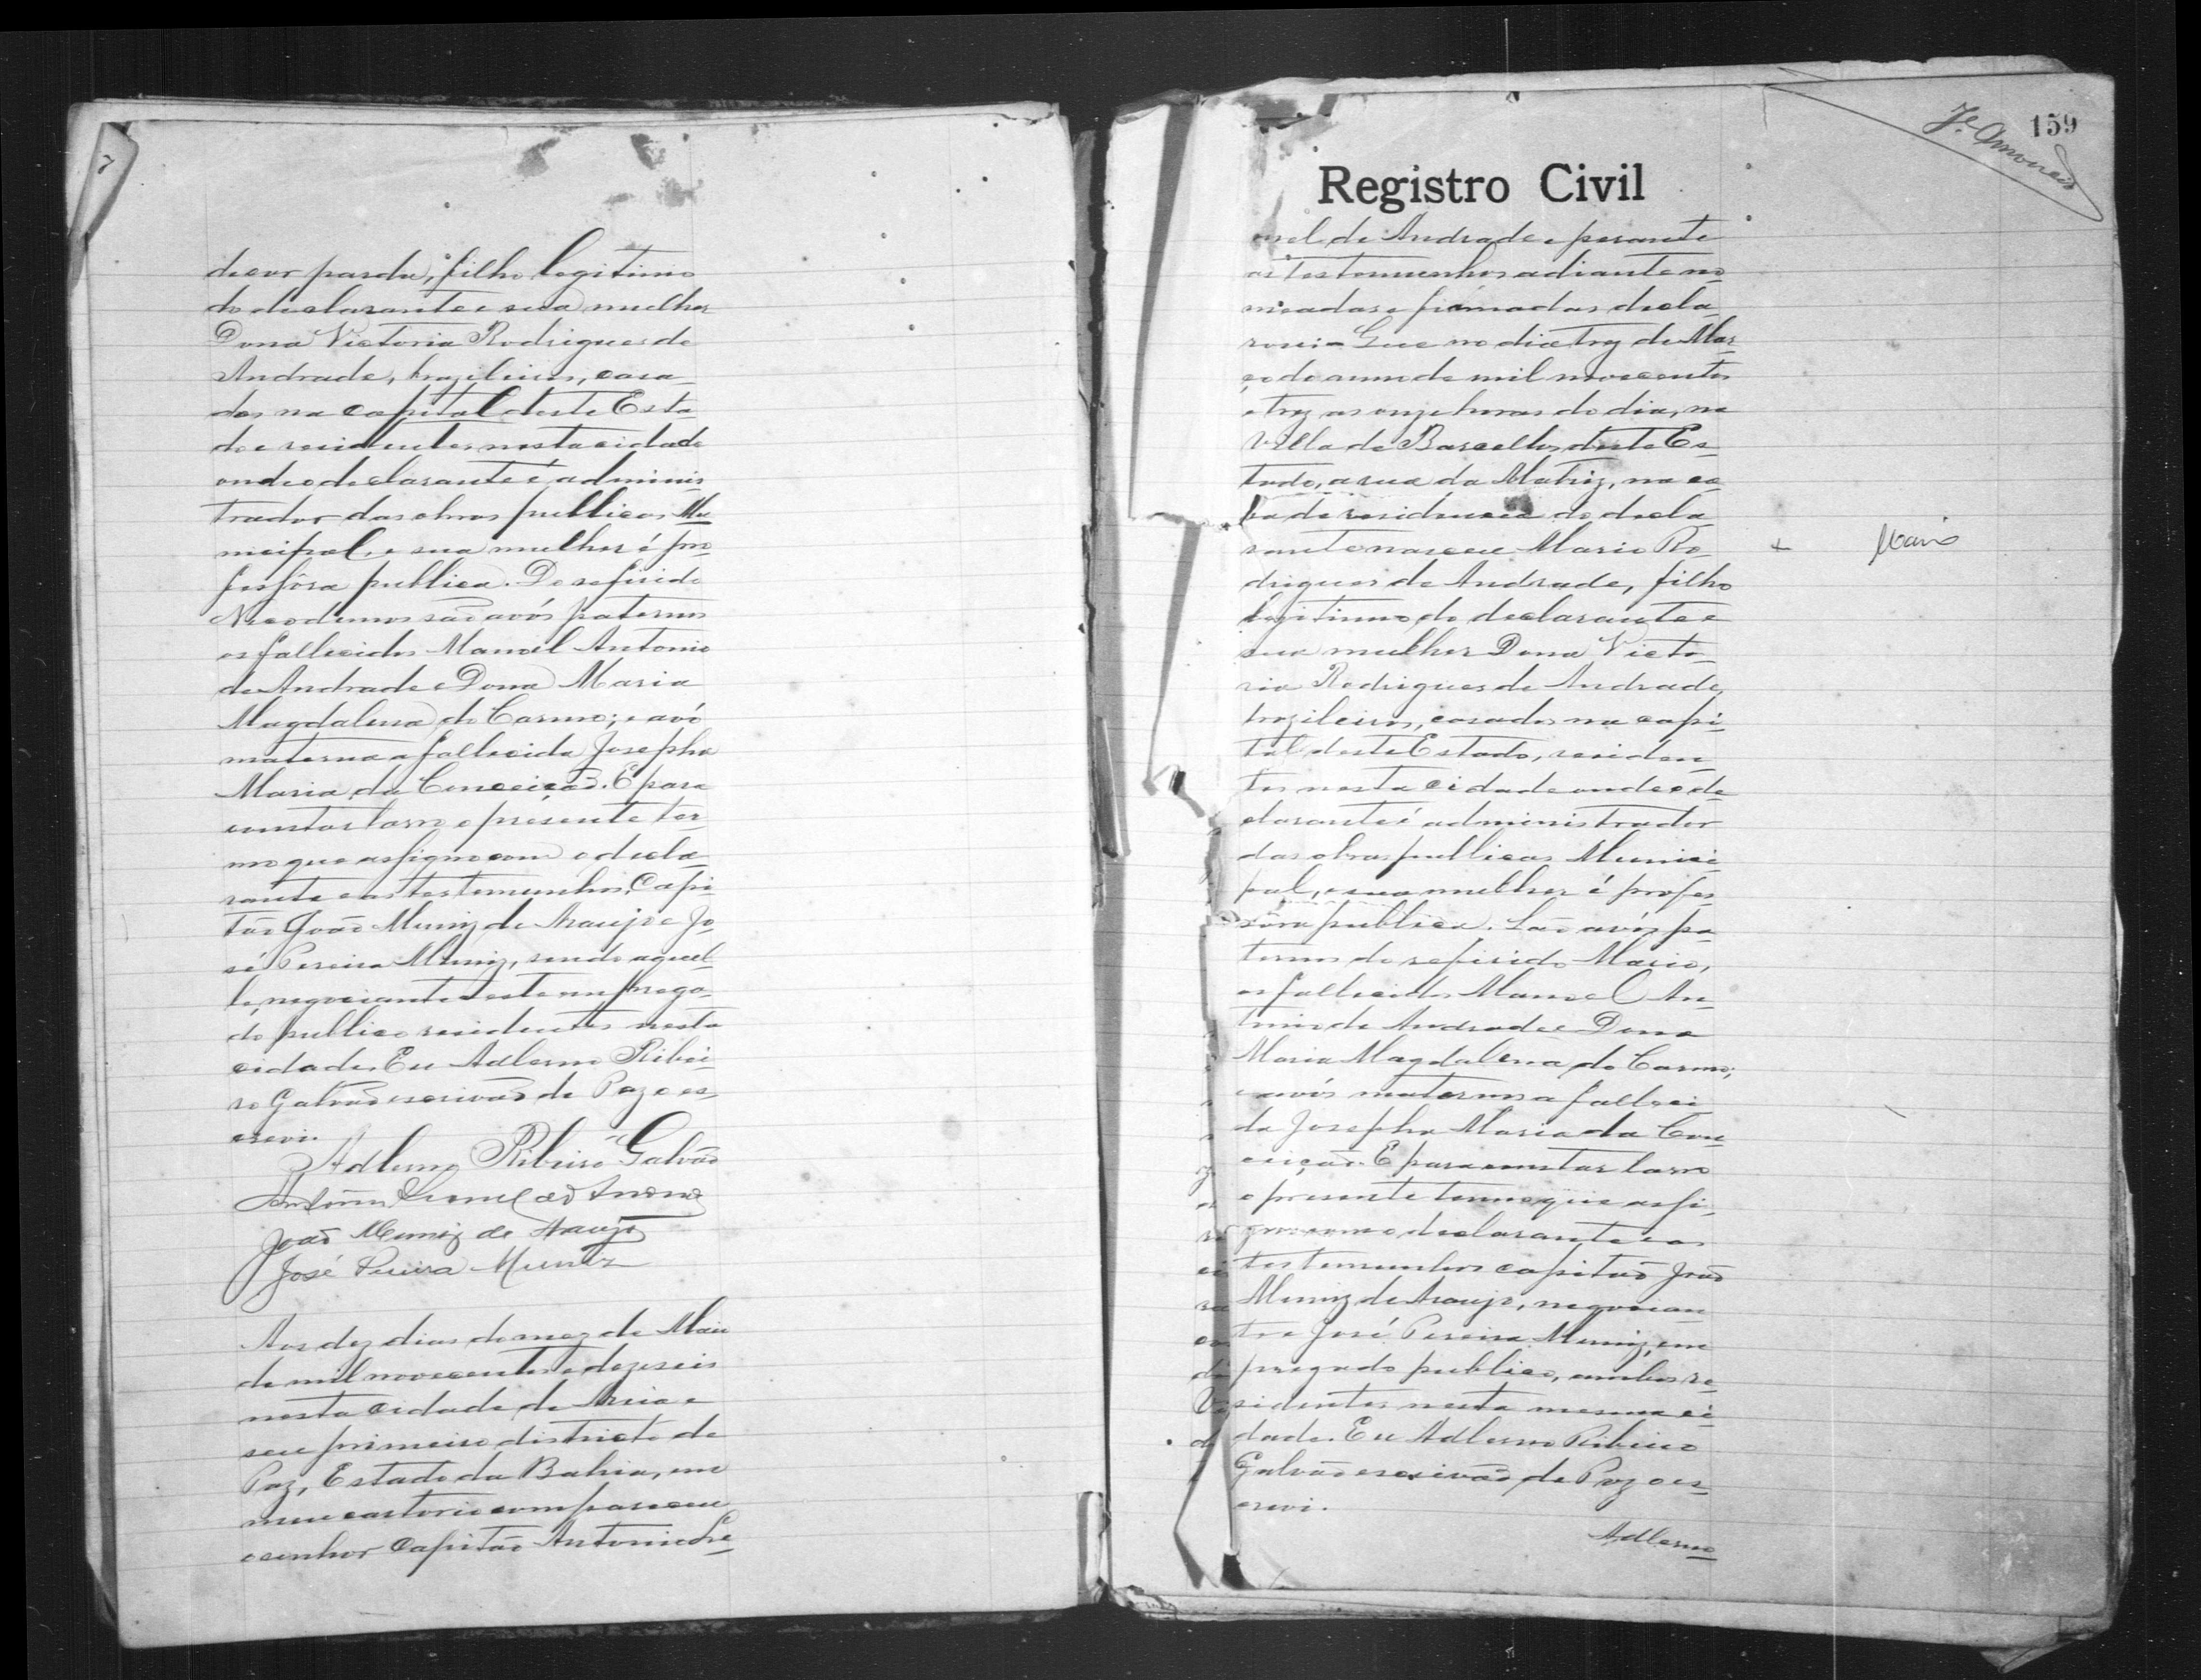 7
de cor parda, filho legitimo
do declarante e sua mulher
Dona Victoria Rodrigues de
Andrade, brazileiros, casa-
dos na capital deste Esta
do e residentes nesta cidade
onde o declarante é adminis
trador das obras publicas Mu
nicipal, e sua mulher é pro
fessôra publica. Do referido
Nicodemos são avós paternos
os fallecidos Manoel Antonio
de Andrade e Dona Maria
Magdalena do Carmo; e avó
materna a fallecida Josepha
Maria da Conceição. E para
constar lavro o presente ter-
mo que assigno com o decla
rante e as testemunhas, Capi
tão João Muniz de Araujo e Jo
sé Pereira Muniz, sendo aquel
le, negociante e este emprega-
do publico residentes nesta
cidade. Eu Adlerno Ribei
ro Galvão escrivão de Paz o es
crevi.
Adlerno Ribeiro Galvão
Antonio Leonel de Andrade
João Muniz de Araujo
José Pereira Muniz
Aos dez dias do mez de Maio
de mil novecentos e dezeseis
nesta cidade de Areia e
seu primeiro districto de
Paz, Estado da Bahia, em
meu cartorio compareceu
o senhor Capitão Antonio Le
159
Registro Civil
onel de Andrade e perante
as testemunhas adiante no
meadas e firmadas decla
rou: - Que no dia trez de Mar
ço do anno de mil novecentos
e trez as onze horas do dia, na
Villa de Barcellos deste Es
tado, a rua da Matriz, na ca
sa de residencia do decla
rante nasceu Mario Ro
drigues de Andrade, filho
legitimo do declarante e
sua mulher Dona Victo
ria Rodrigues de Andrade,
brazileiros, casados na capi
tal deste Estado, residen
tes nesta cidade onde o de
clarante é administrador
das obras publicas Munici
pal, e sua mulher é profes
sôra publica. São avós pa
ternos do referido Mario,
os fallecidos Manoel An
tonio de Andrade e Dona
Maria Magdalena do Carmo;
e avós maternos a falleci
da Josepha Maria da Con
ceição. E para constar lavro
o presente termo que assi
gno com o declarante e as
testemunhas capitão João
Muniz de Araujo, negocian
te e José Pereira Muniz, em
pregado publico, ambos re
sidentes nesta mesma ci
dade. Eu Adlerno Ribeiro
Galvão escrivão de Paz o es
crevi.
Adlerno
+ Mario